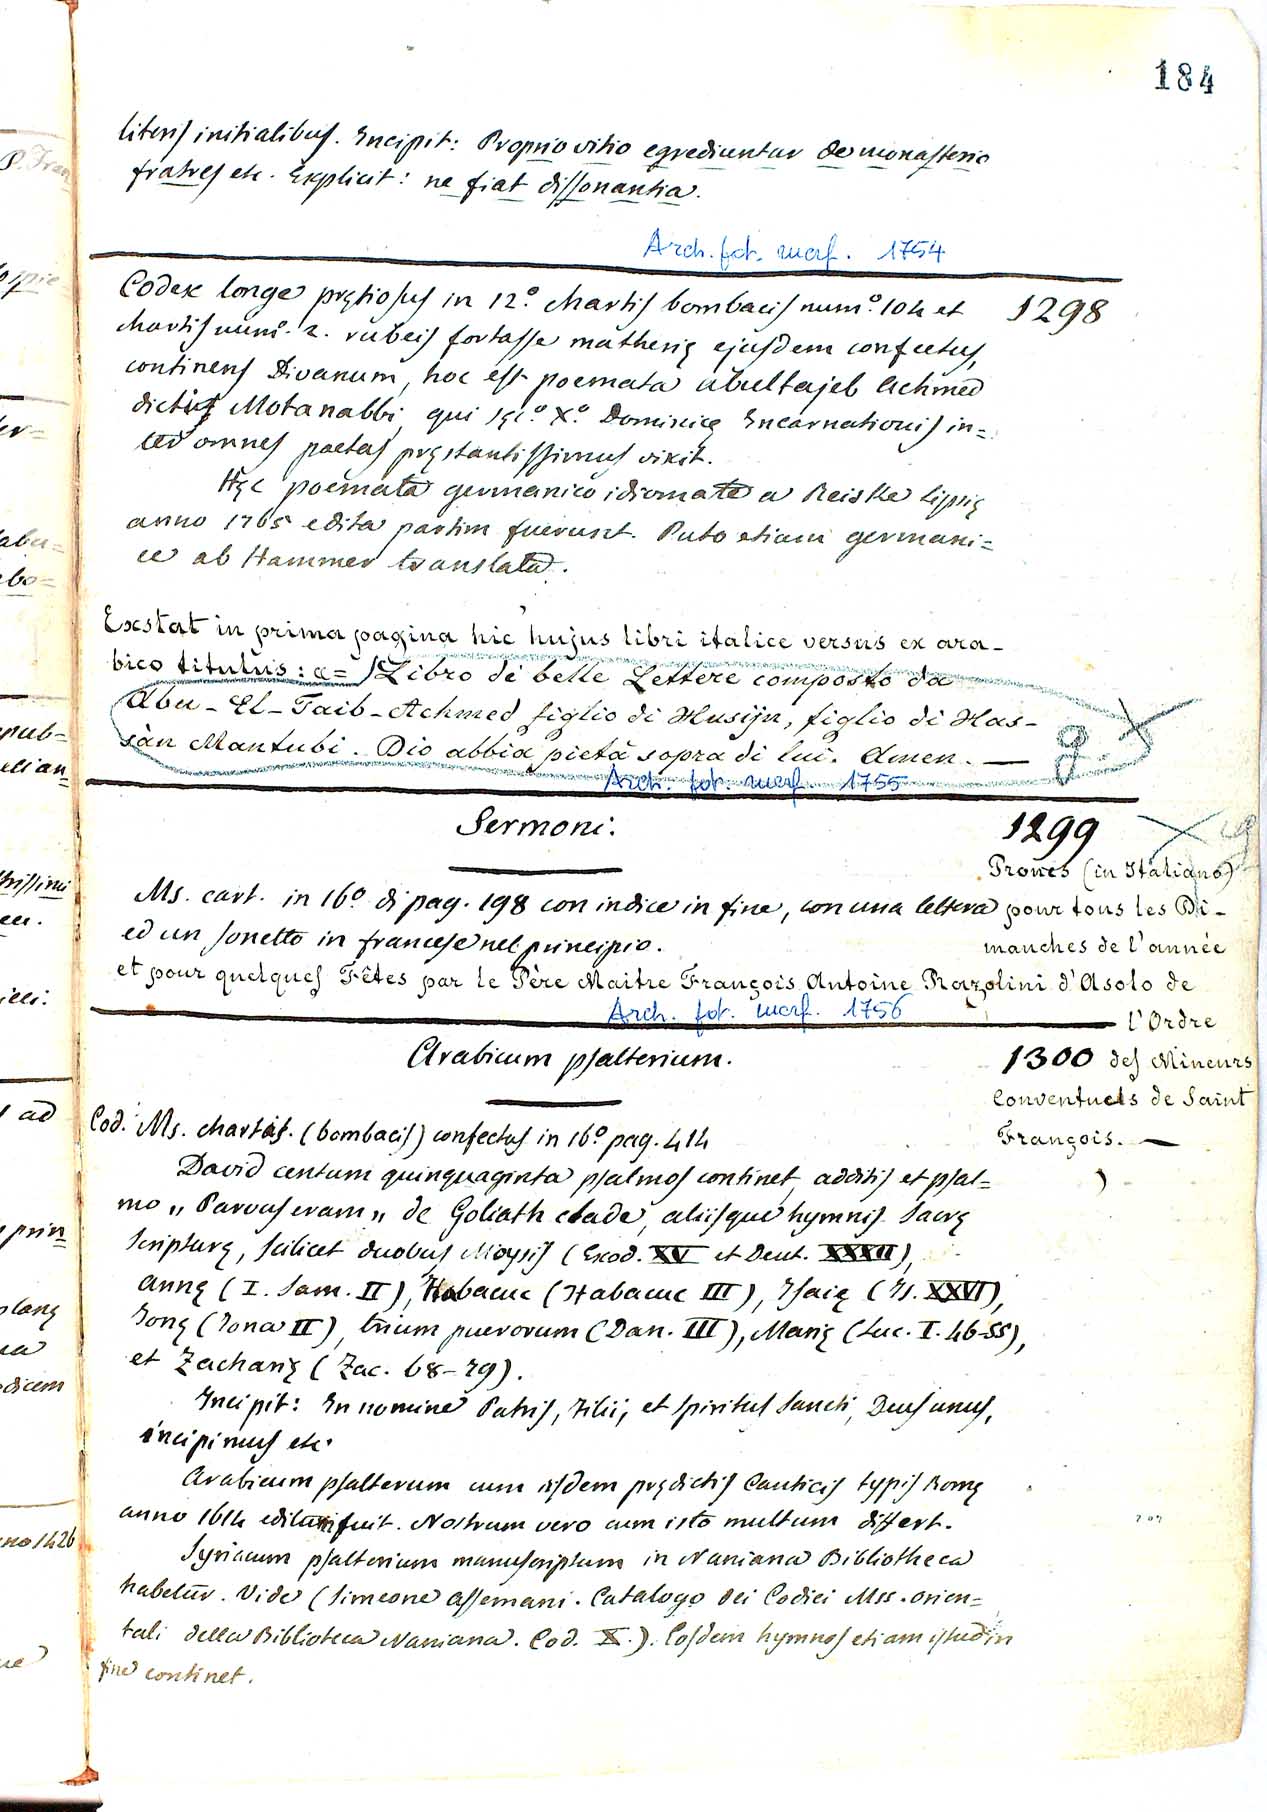 184
literis initialibus. Incipit: Proprio vitio egrediuntur de monasterio
fratres etc. Explicit: ne fiat dissonantia.
Arch. fot. marf. 1754
Codex longe prętiosus in 12.º chartis bombacis num.º 104 et 1298
chartis num.º 2. rubeis fortasse materię ejusdem confectus,
continens Divanum, hoc est poemata Abultajeb Achmed
dictus Motanabbi, qui sęc.º X.º Dominicę Incarnationis in=
ter omnes poetas pręstantissimus vixit.
Hęc poemata germanico idiomate a Reiske Lipsię
anno 1765 edita partim fuerunt. Puto etiam germani=
ce ab Hammer translata.
Exstat in prima pagina hic hujus libri italice versus ex ara-
bico titulus: a= Libro de belle Lettere composto da
Abu-El-Taib-Achmed figlio di Husijn, figlio di Has-
sàn Mantubi. Dio abbia pietà sopra di lui. Amen. —
Arch. fot. marf. 1755
Sermoni. 1299
Prones (in Italiano)
Ms. cart. in 16.º di pag. 198 con indice in fine, con una lettera pour tous les Di-
ed un sonetto in francese nel principio. manches de l'année
et pour quelques Fêtes par le Père Maitre François Antoine Razolini d'Asolo de
Arch. fot. marf. 1756
l'Ordre
Arabicum psalterium. 1300 des Mineurs
Conventuels de Saint
Cod. Ms. chartis. (bombacis) confectus in 16.º pag. 414 François. —
David centum quinquaginta psalmos continet, additis et psal=
mo „ Parvus eram „ de Goliath clade, aliisque hymnis Sacrę
Scripturę, scilicet duobus Moysis (Exod. XV et Deut. XXXII),
Annę (I. Sam. II), Habacuc (Habacuc III), Isaię (Is. XXVI),
Jonę (Jona II), trium puerorum (Dan. III), Marię (Luc. I. 46-55),
et Zacharię (Zac. 68-79).
Incipit: In nomine Patris, Filii, et Spiritus Sancti, Deus unus,
incipimus etc.
Arabicum psalterum cum iisdem prędictis Canticis typis Romę
anno 1614 editum fuit. Nostrum vero cum isto multum differt.
Syriacum psalterium manuscriptum in Naniana Bibliotheca
habetur. Vide (Simeone Assemani. Catalogo dei Codici Mss. orien=
tali della Biblioteca Naniana. Cod. X.). Eosdem hymnos etiam istud in
fine continet.